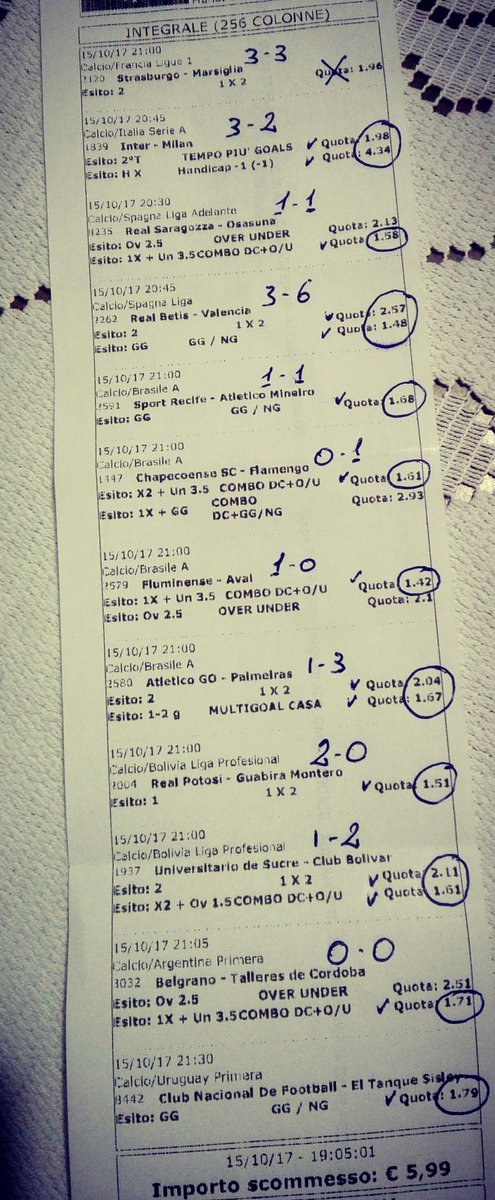 INTEGRALE (256 COLONNE)
15/10/17 21:00
Calcio/Francia Ligue 1
3-3
2120 Strasburgo - Marsiglia Quota: 1.96
Esito: 2 1 X 2
15/10/17 20:45
Calcio/Italia Serie A
3-2
1839 Inter - Milan
Esito: 2°T TEMPO PIU' GOALS ✓ Quota: 1.98
Esito: H X Handicap -1 (-1) ✓ Quota: 4.34
15/10/17 20:30
Calcio/Spagna Liga Adelante
1-1
3235 Real Saragozza - Osasuna
Esito: Ov 2.5 OVER UNDER Quota: 2.13
Esito: 1X + Un 3.5 COMBO DC+O/U ✓ Quota: 1.58
15/10/17 20:45
Calcio/Spagna Liga
3-6
2262 Real Betis - Valencia
Esito: 2 1 X 2 ✓ Quota: 2.57
Esito: GG GG / NG ✓ Quota: 1.48
15/10/17 21:00
Calcio/Brasile A
1-1
2591 Sport Recife - Atletico Mineiro
Esito: GG GG / NG ✓ Quota: 1.68
15/10/17 21:00
Calcio/Brasile A
0-1
1447 Chapecoense SC - Flamengo
Esito: X2 + Un 3.5 COMBO DC+O/U ✓ Quota: 1.61
Esito: 1X + GG COMBO DC+GG/NG Quota: 2.93
15/10/17 21:00
Calcio/Brasile A
1-0
2579 Fluminense - Avai
Esito: 1X + Un 3.5 COMBO DC+O/U ✓ Quota: 1.42
Esito: Ov 2.5 OVER UNDER Quota: 2.1
15/10/17 21:00
Calcio/Brasile A
1-3
2580 Atletico GO - Palmeiras
Esito: 2 1 X 2 ✓ Quota: 2.04
Esito: 1-2 g MULTIGOAL CASA ✓ Quota: 1.67
15/10/17 21:00
Calcio/Bolivia Liga Profesional
2-0
2004 Real Potosi - Guabira Montero
Esito: 1 1 X 2 ✓ Quota: 1.51
15/10/17 21:00
Calcio/Bolivia Liga Profesional
1-2
1937 Universitario de Sucre - Club Bolivar
Esito: 2 1 X 2 ✓ Quota: 2.11
Esito: X2 + Ov 1.5 COMBO DC+O/U ✓ Quota: 1.61
15/10/17 21:05
Calcio/Argentina Primera
0-0
3032 Belgrano - Talleres de Cordoba
Esito: Ov 2.5 OVER UNDER Quota: 2.51
Esito: 1X + Un 3.5 COMBO DC+O/U ✓ Quota: 1.71
15/10/17 21:30
Calcio/Uruguay Primera
3442 Club Nacional De Football - El Tanque Sisley
Esito: GG GG / NG ✓ Quota: 1.79
15/10/17 - 19:05:01
Importo scommesso: € 5,99